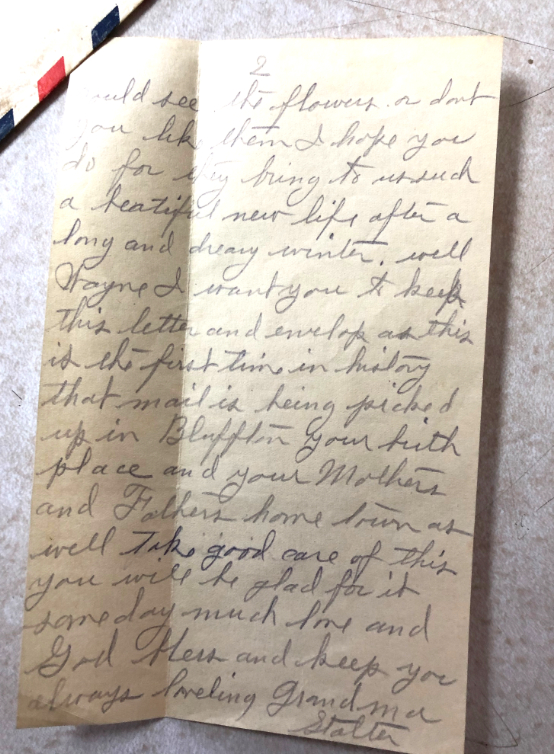 2
could see the flowers. or dont
you like them I hope you
do for they bring to us such
a beatiful new life after a
long and dreary winter. well
Wayne I want you to keep
this letter and envelop as this
is the first time in history
that mail is being picked
up in Bluffton your birth
place and your Mothers
and Fathers home town as
well Take good care of this
you will be glad for it
someday much love and
God bless and keep you
always loveling Grandma
Stalter